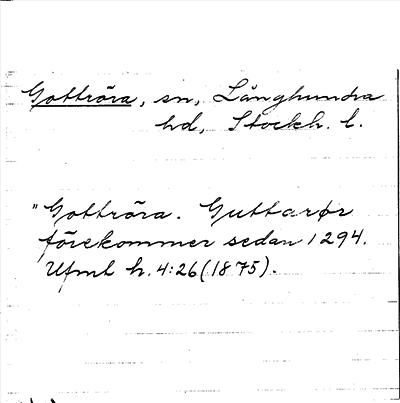 Gottröra, sn, Långhundra
hd, Stockh. l.
"Gottröra. Guttarør
förekommer sedan 1294.
Ufmt h. 4:26 (1875).